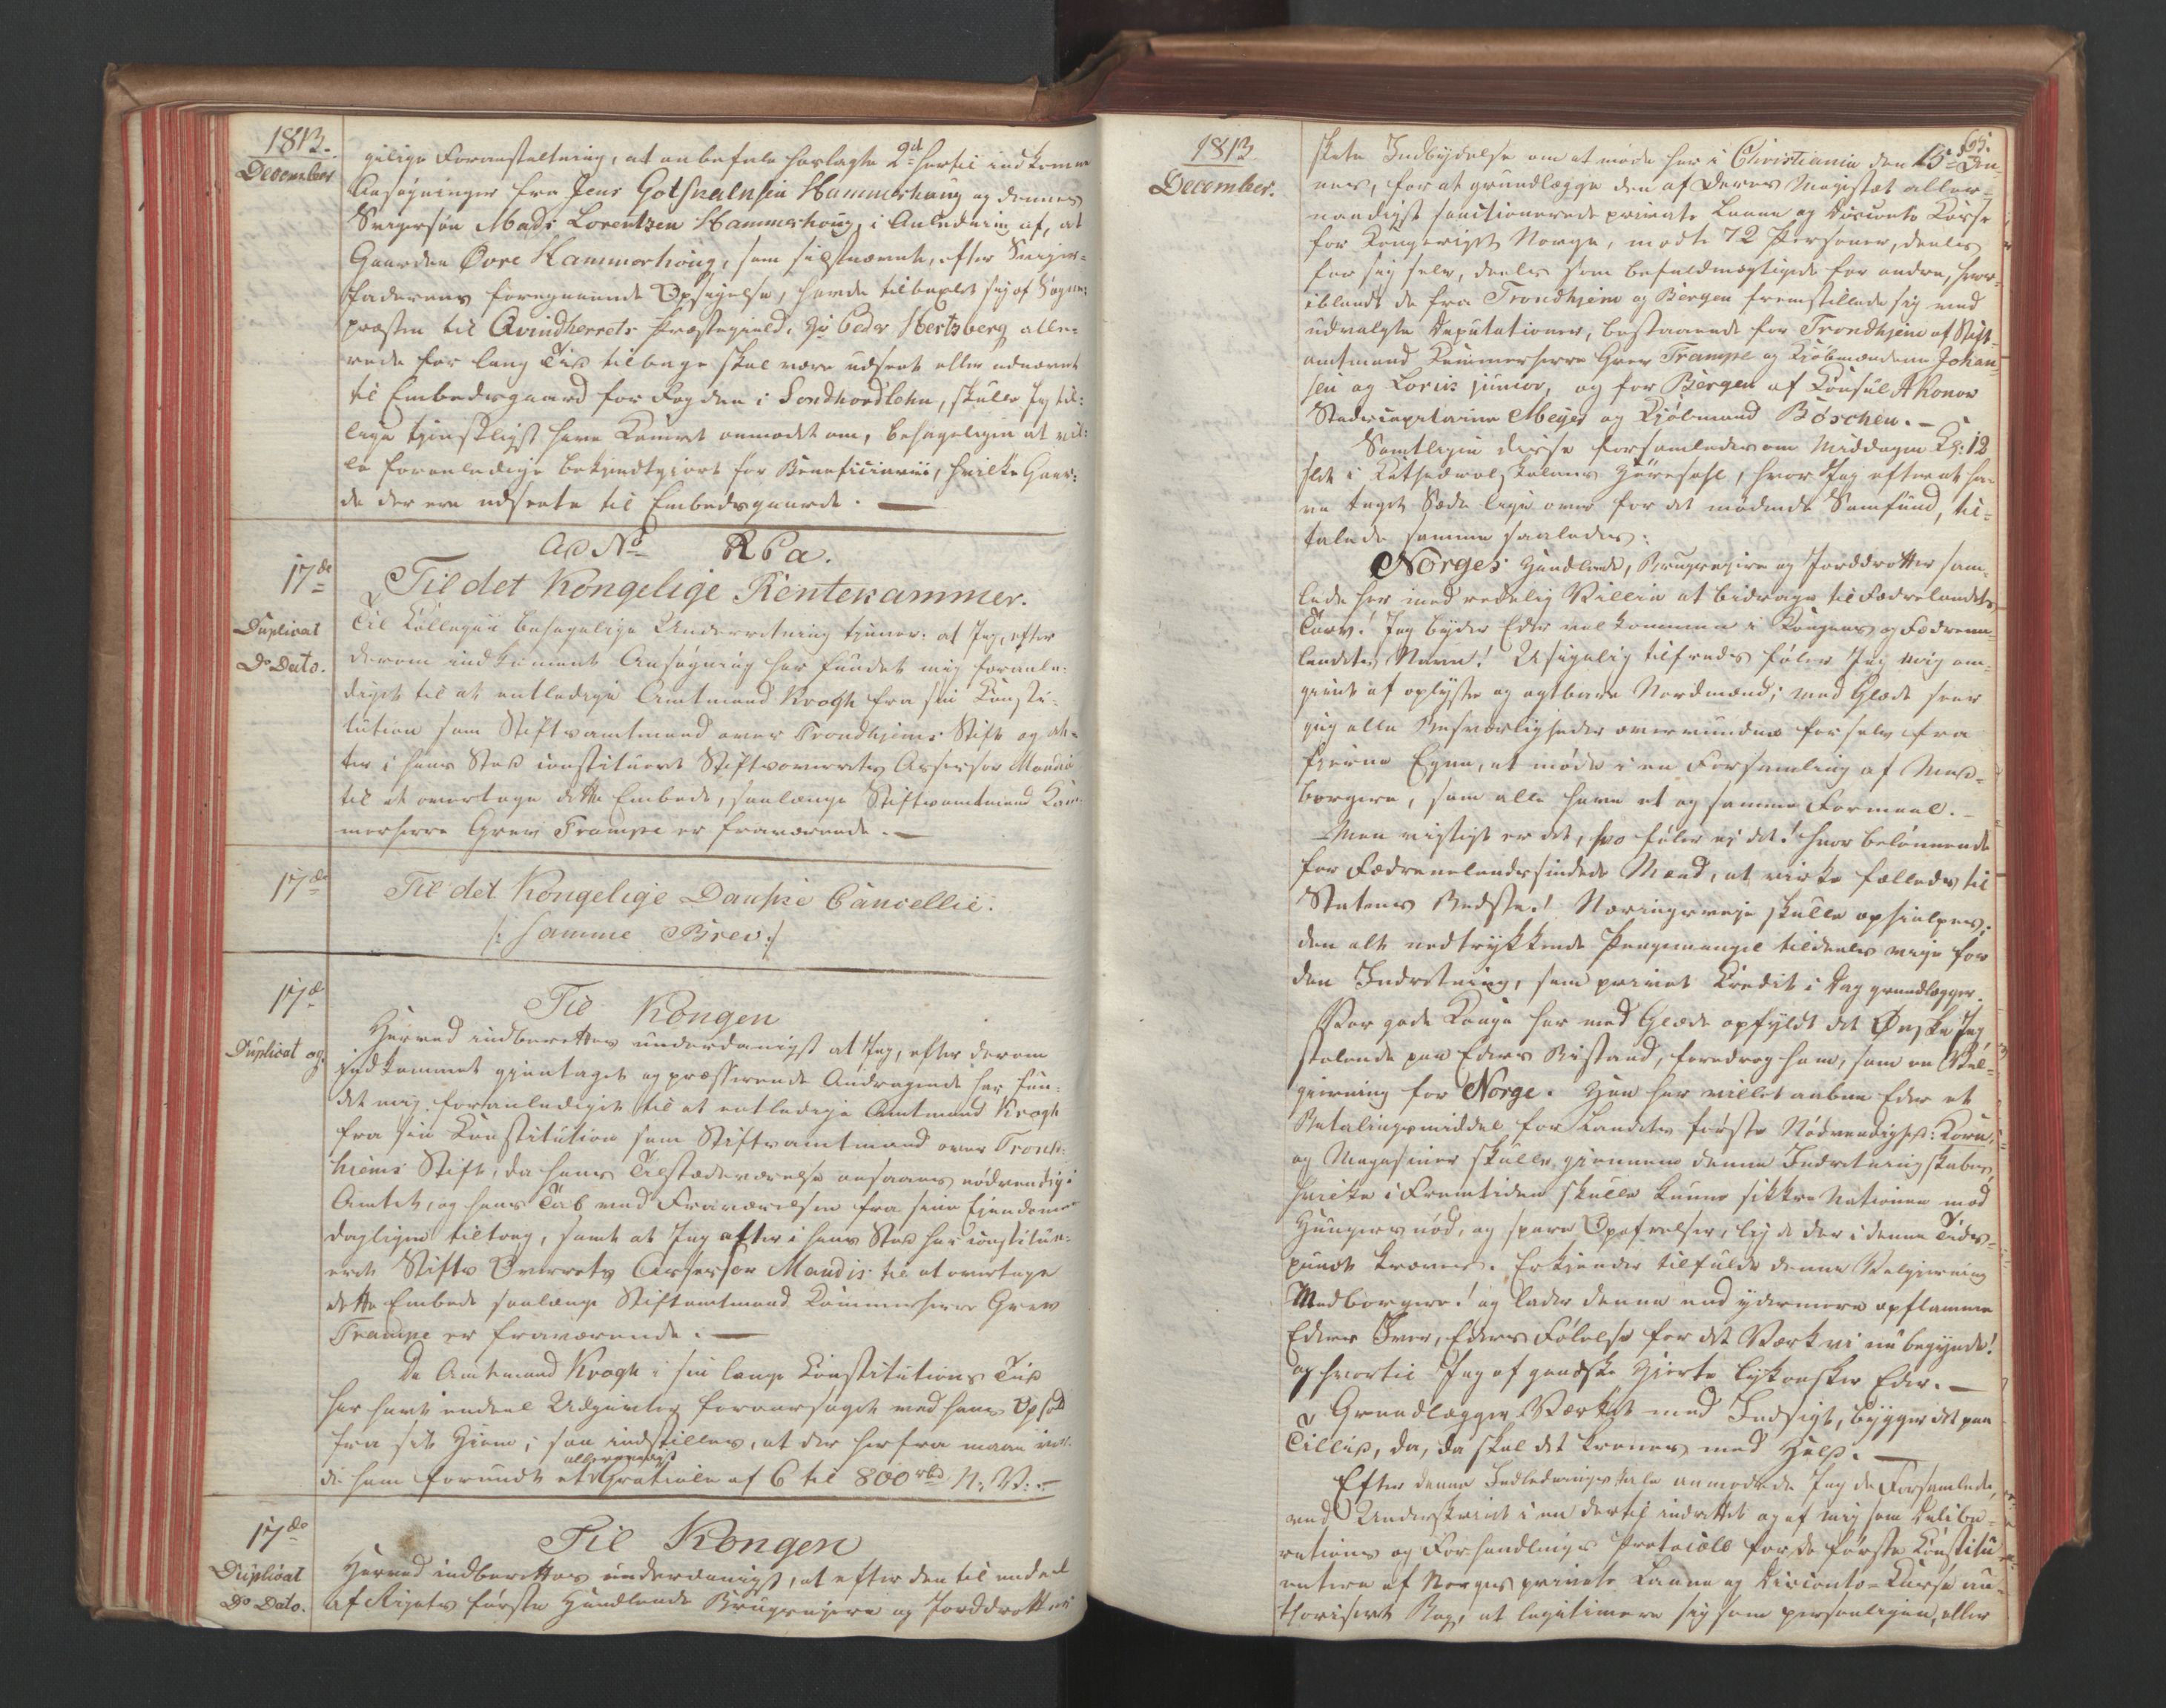 1813.
December
gelige Foranstaltning, at anbefale hoslagte 2de hertil indkomne
Ansøgninger fra Jens Hammerhaug og dennes
Svigersøn Mads Lorentzen Hammerhoug, i Anledning af, at
Gaarden Øvre Hammerhoug, som sidstnævnte, efter Sviger-
faderens foregaaende Opsigelse, havde tilbexlet sig af Sogne-
præsten til Qvindherrets Præstegield, Hr Peder Hertzberg alle-
rede for lang Tid tilbage skal være udseet eller udnævnt
til Embedsgaard for Fogden i Søndhordlehn, skulle Jeg til-
lige tjenstligst have Kamret anmodet om, behageligen at vil-
le foranledige bekjendtgjort for Beneficiarii, hvilke Gaar-
de der ere udseete til Embedsgaarde. —
17de
Duplicat
Do Dato.
Ad No R 6 a.
Til det Kongelige Rentekammer.
Til Collegii behagelige Underretning tjener: at Jeg, efter
derom indkommet Ansøgning har fundet mig foranle-
diget til at entledige Amtmand Krogh fra sin Consti-
tution som Stiftsamtmand over Trondhjems Stift og at-
ter i hans Sted constitueret Stiftsoverrets Assessor Maudis
til at overtage dette Embede, saalænge Stiftsamtmand Kam-
merherre Grev Trampe er fraværende. —
17de
Til det Kongelige Danske Cancellie.
/: Samme Brev :/
17de
Duplicat og
Til Kongen
Herved indberettes underdanigst at Jeg, efter derom
indkommet gjentaget og presserende Andragende har fun-
det mig foranlediget til at entledige Amtmand Krogh
fra sin Constitution som Stiftsamtmand over Trond-
hiems Stift, da hans Tilstædeværelse ansaaes nødvendig i
Amtet, og hans Tab ved Fraværelsen fra sine Eiendomme
dagligen tiltog, samt at Jeg atter i hans Sted har constitue-
ret Stifts Overrets Assessor Maudis til at overtage
dette Embede saalænge Stiftamtmand Kammerherre Grev
Trampe er fraværende. —
Da Amtmand Krogh i sin lange Constitutions Tid
har havt endeel Udgivter foraarsaget ved hans Ophold
fra sit Hjem; saa indstilles, at der herfra maae
de ham forundt et allernaadigst Gratiale af 6 til 800 rbd N: V: —
17de
Duplicat
Do Dato.
Til Kongen
Herved indberettes underdanigst, at efter den til endeel
af Rigets første Handlende Brugseiere og Jorddrotter
1813
December.
65.
skete Indbydelse om at møde her i Christiania den 15de Den-
nes, for at grundlægge den af Deres Majestæt aller-
naadigst sanctionerede private Laane og Disconto Casse
for Kongeriget Norge, mødte 72 Personer, deels
for sig selv, deels som befuldmægtigede for andre, hvor-
iblandt de fra Trondhjem og Bergen fremstillede sig ved
udvalgte Deputationer, bestaaende for Trondhjem af Stift-
amtmand Kammerherre Grev Trampe og Kjøbmændene Johan-
sen og Lorck junior, og for Bergen af Consul Konow
Stadscapitaine Meyer og Kjøbmand Böschen. —
Samtlige disse forsamledes om Middagen Kl: 12
slet i Cathedralskolens Høresahl, hvor Jeg efter at ha-
ve taget Sæde lige over for det mødende Samfund, til-
talede samme saaledes:
Norges Handlende, Brugseiere og Jorddrotter sam-
lede her med redelig Villie at bidrage til Fædrelandets
Tarv! Jeg byder Eder velkommen i Kongens og Fædrene-
landets Navn! Usigelig tilfreds føler Jeg mig om-
givet af oplyste og agtbare Nordmænd; med Glæde seer
jeg alle Besværligheder overvundne for selv fra
fjerne Egne, at møde i en Forsamling af Med-
borgere, som alle have et og samme Formaal. —
Men vigtigt er det, hvo føler ei det! hvor belønnende
for Fædrenelandssindede Mænd, at virke fælleds til
Statens Bedste! Næringsveje skulle ophielpes;
den alt nedtrykkende Pengemangel tildeels vige for
den Indretning, som privat Credit i Dag grundlægger.
Vor gode Konge har med Glæde opfyldt det Ønske Jeg
stolende paa Eders Bistand, foredrog ham, som en Vel-
gierning for Norge. Han har villet aabne Eder et
Betalingsmiddel for Landets første Nødvendighed: Korn,
og Magasiner skulle gjennem denne Indretning skabes,
hvilke i Fremtiden skulle kunne sikkre Nationen mod
Hungersnød, og spare Opofrelser, lig de der i denne Tids-
punct kræves. Erkjender tilfulde denne Velgierning
Medborgere! og lader denne end ydermere opflamme
Eders Iver, Eders Følelse for det Værk vi nu begynde!
og hvortil Jeg af ganske Hjerte lykønsker Eder. —
Grundlægger Værket med Indsigt, bygger det paa
Tillid, da, da skal det krones med Held. —
Efter denne Indlednings tale anmodede Jeg de Forsamlede,
ved Underskrivt i en dertil indrettet og af mig som Delibe-
rations og Forhandlings Protocoll for de første Constitu-
enter af Norges private Laane og Disconto-Casse au-
thoriseret Bog, at legitimere sig som personligen, eller